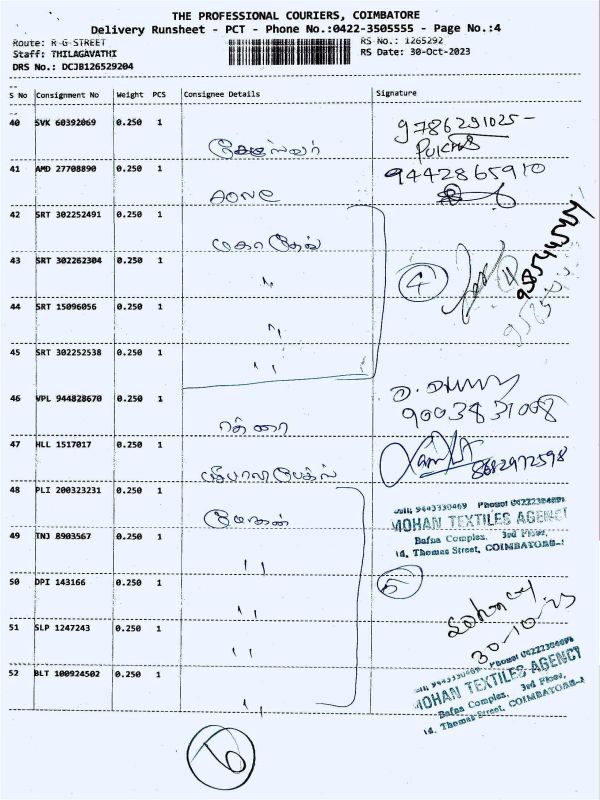 THE PROFESSIONAL COURIERS, COIMBATORE
Delivery Runsheet - PCT - Phone No.:0422-3505555 - Page No.:4
Route: R G STREET
RS No.: 1265292
Staff: THILAGAVATHI
RS Date: 30-Oct-2023
DRS No.: DCJB126529204
S No Consignment No Weight PCS Consignee Details Signature
40 SVK 60392069 0.250 1
9786291025-
41 AMD 27708890 0.250 1
9442865910
AONE
42 SRT 302252491 0.250 1
43 SRT 302262304 0.250 1
"
4
44 SRT 15096056 0.250 1
"
45 SRT 302252538 0.250 1
"
46 VPL 944828670 0.250 1
9003831008
47 HLL 1517017 0.250 1
8682972598
48 PLI 200323231 0.250 1
மோகன்
Cell: 9443330469 Phone: 04222304698
MOHAN TEXTILES AGENCY
Bafna Complex, 3rd Floor,
14, Thomas Street, COIMBATORE-1
49 TNJ 8903567 0.250 1
"
50 DPI 143166 0.250 1
"
5
51 SLP 1247243 0.250 1
"
30-10-23
52 BLT 100924502 0.250 1
"
Cell: 9443330469 Phone: 04222304698
MOHAN TEXTILES AGENCY
Bafna Complex, 3rd Floor,
14, Thomas Street, COIMBATORE-1
6